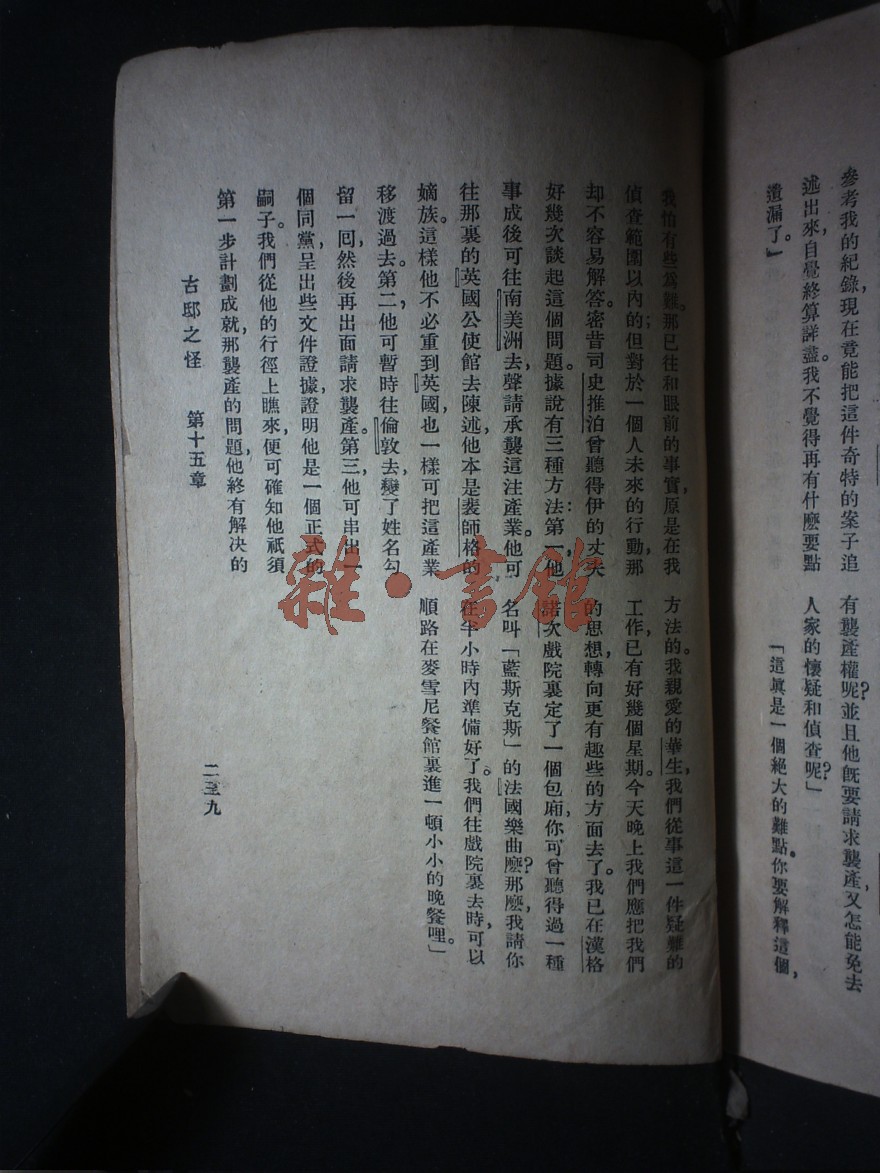 參考我的紀錄,現在竟能把這件奇特的案子追
述出來,自覺終算詳盡。我不覺得再有什麽要點
遺漏了。」
有襲產權呢?並且他旣要請求襲產,又怎能免去
人家的懷疑和偵查呢?」
「這眞是一個絕大的難點。你要解釋這個,
我怕有些爲難。那已往和眼前的事實,原是在我
偵查範圍以內的;但對於一個人未來的行動,那
却不容易解答。密昔司史推泊曾聽得伊的丈夫
好幾次談起這個問題。據說有三種方法:第一,他
事成後可往南美洲去,聲請承襲這注產業。他可
往那裏的英國公使館去陳述,他本是裴師格的
嫡族。這樣他不必重到英國,也一樣可把這產業
移渡過去。第二,他可暫時往倫敦去,變了姓名勾
留一囘,然後再出面請求襲產。第三,他可串出一
個同黨,呈出些文件證據,證明他是一個正式的
嗣子。我們從他的行徑上瞧來,便可確知他祇須
第一步計劃成就,那襲產的問題,他終有解決的
方法的。我親愛的華生,我們從事這一件疑難的
工作,已有好幾個星期。今天晚上我們應把我們
的思想,轉向更有趣些的方面去了。我已在漢格
諾次戲院裏定了一個包廂,你可曾聽得過一種
名叫「藍斯克斯」的法國樂曲麽?那麽,我請你
在半小時內準備好了。我們往戲院裏去時,可以
順路在麥雪尼餐館裏進一頓小小的晚餐哩。」
古邸之怪 第十五章
二三九
雜·書館